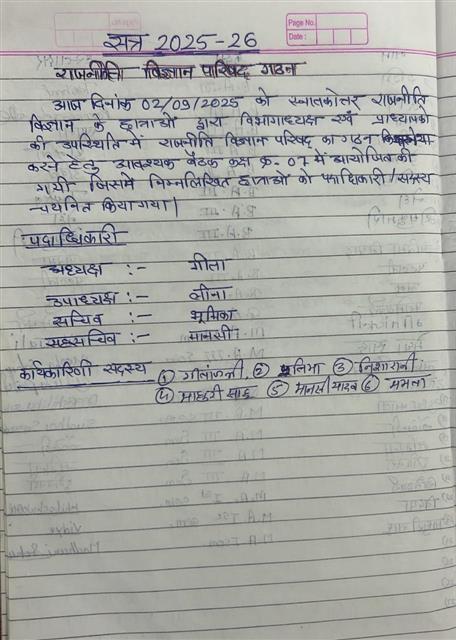 Page No.
Date :
सत्र 2025-26
राजनीति विज्ञान परिषद गठन
आज दिनांक 02/09/2025 को स्नातकोत्तर राजनीति
विज्ञान के छात्राओं द्वारा विभागाध्यक्ष एवं प्राध्यापकों
की उपस्थिति में राजनीति विज्ञान परिषद का गठन
करने हेतु आवश्यक बैठक कक्ष क्र.- 07 में आयोजित की
गयी जिसमें निम्नलिखित छात्राओं को पदाधिकारी/सदस्य
चयनित किया गया।
पदाधिकारी
अध्यक्ष :- गीता
उपाध्यक्ष :- लीना
सचिव :- भूमिका
सहसचिव :- मानसी
कार्यकारिणी सदस्य ① गीतांजली ② ③ निशारानी
④ माधुरी साहू ⑤ मानसी यादव ⑥ ममता